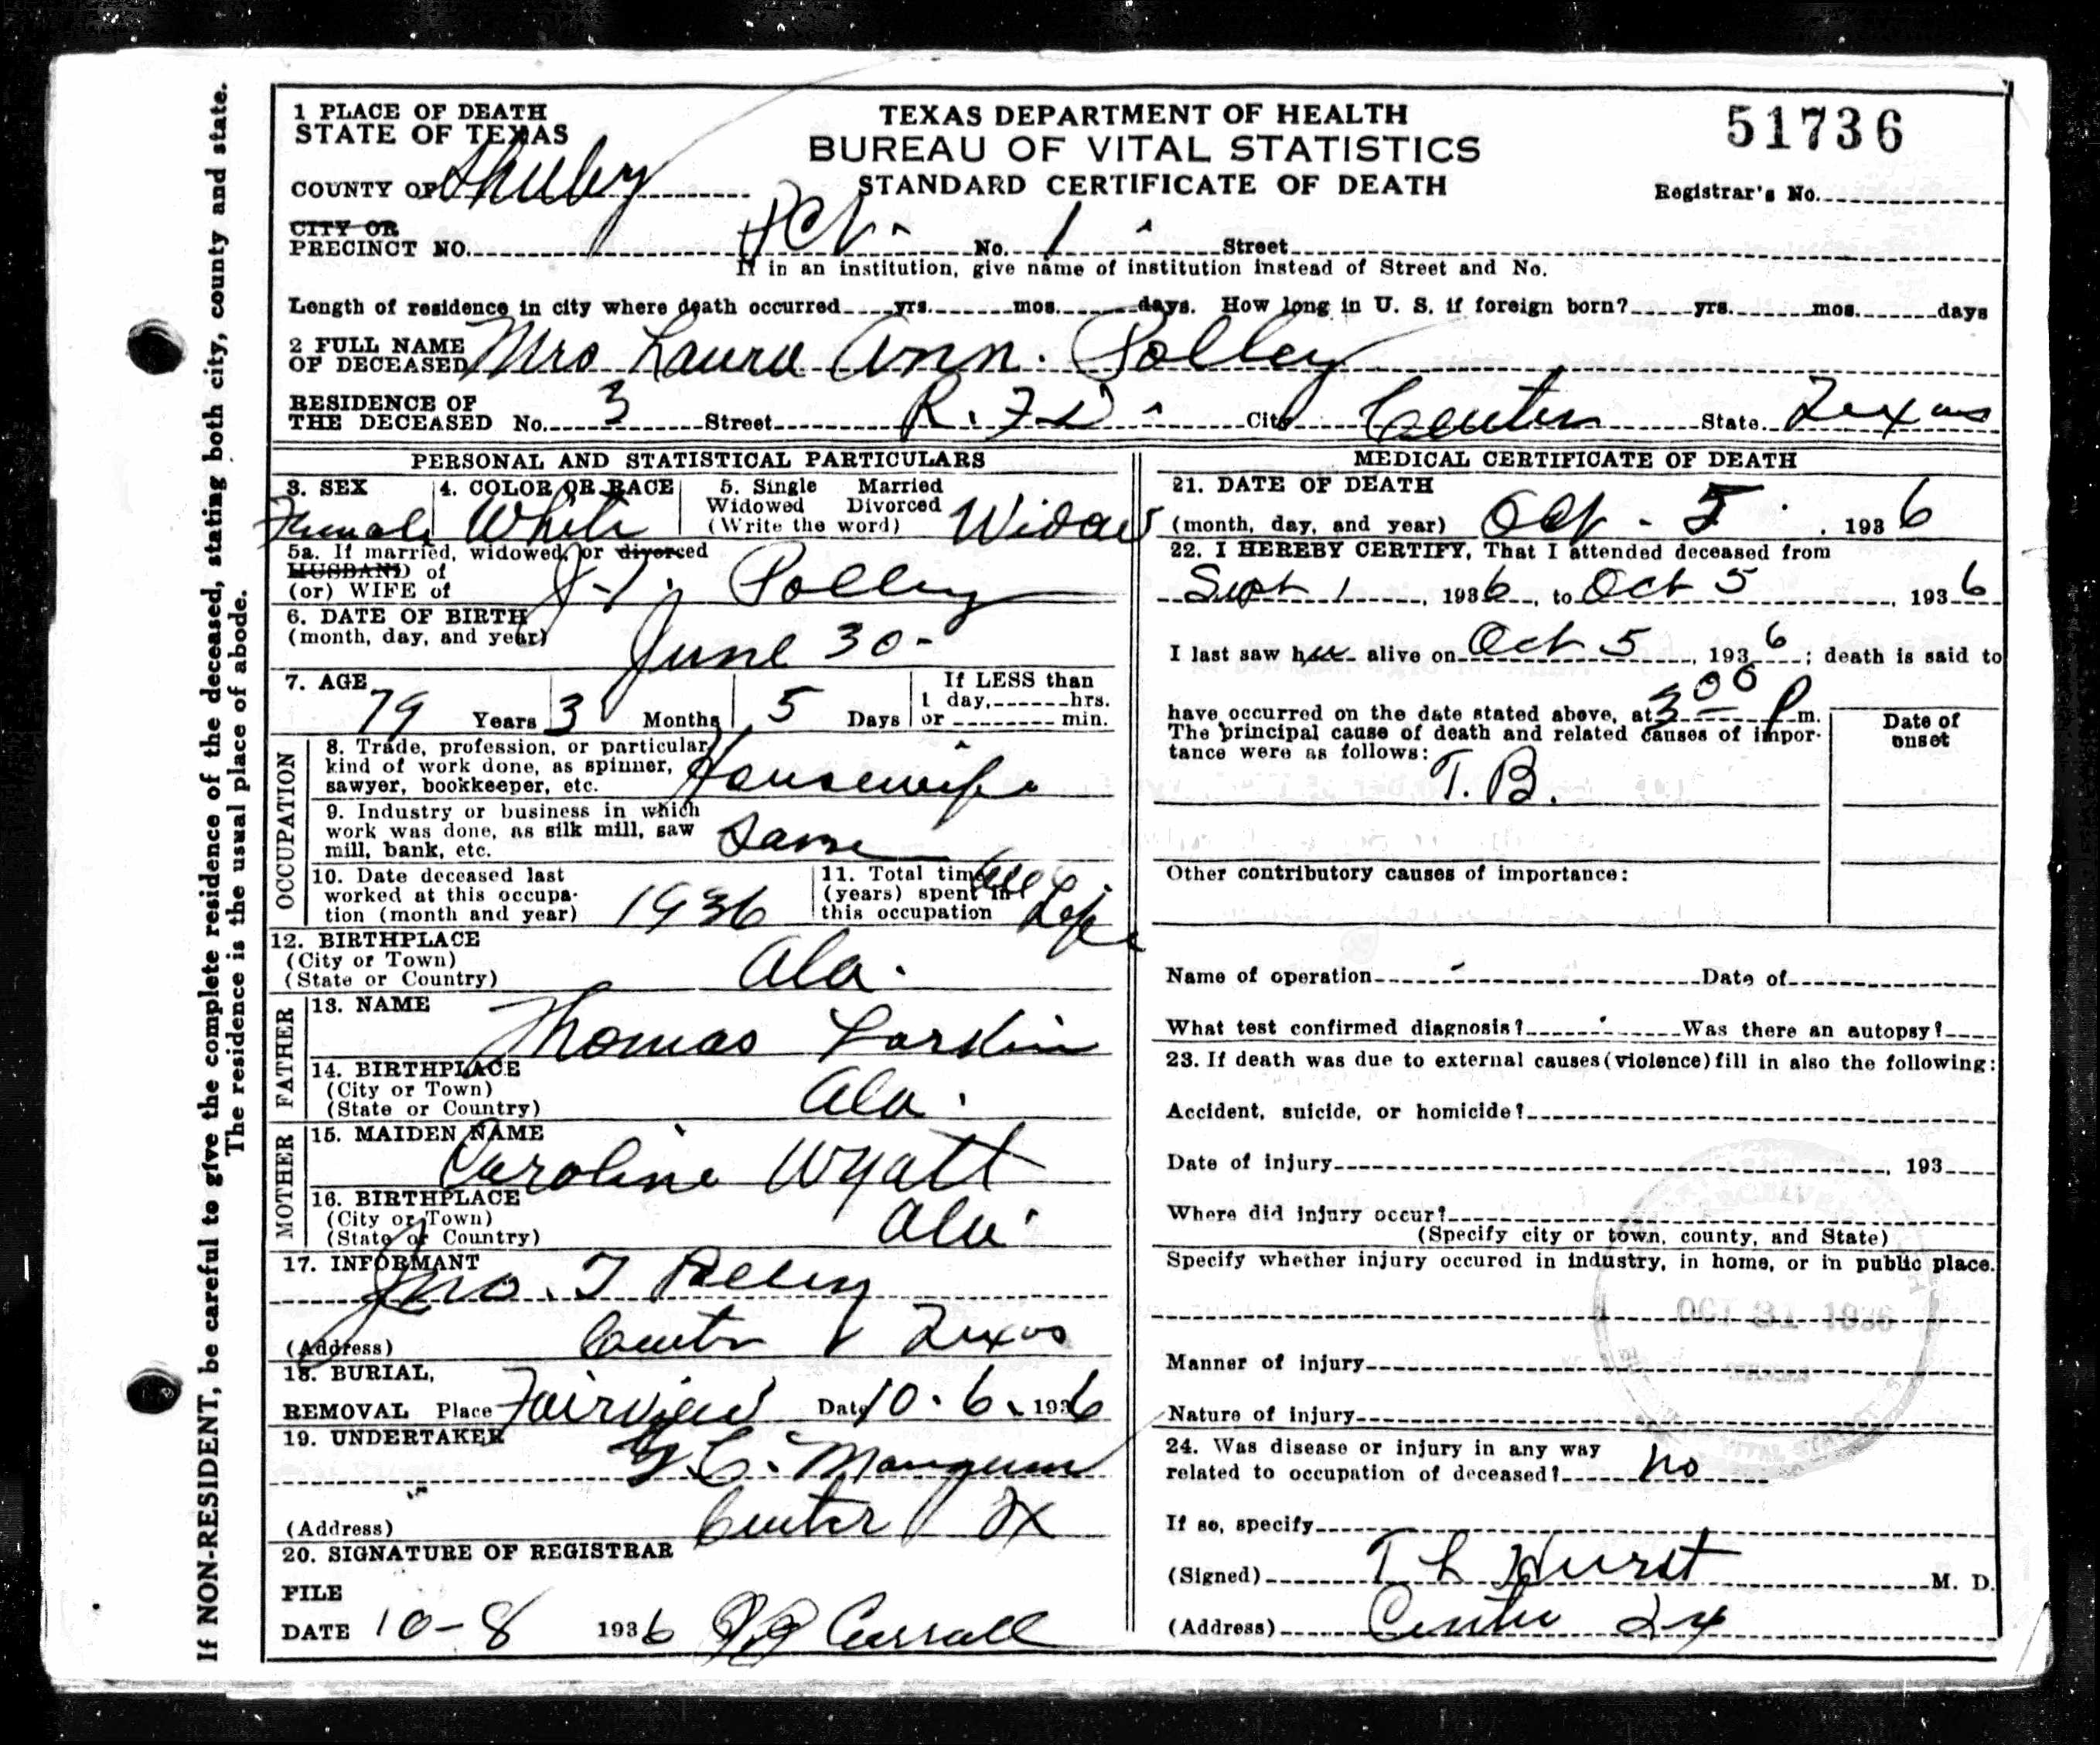 If NON-RESIDENT, be careful to give the complete residence of the deceased, stating both city, county and state.
The residence is the usual place of abode.
1 PLACE OF DEATH
STATE OF TEXAS
COUNTY OF Shelby
TEXAS DEPARTMENT OF HEALTH
BUREAU OF VITAL STATISTICS
STANDARD CERTIFICATE OF DEATH
51736
Registrar's No.
CITY OR
PRECINCT NO. Pct No. 1 Street
If in an institution, give name of institution instead of Street and No.
Length of residence in city where death occurred yrs. mos. days. How long in U. S. if foreign born? yrs. mos. days
2 FULL NAME
OF DECEASED Mrs Laura Ann. Polley
RESIDENCE OF
THE DECEASED No. 3 Street R. F. D. City Center State Texas
PERSONAL AND STATISTICAL PARTICULARS
3. SEX Female
4. COLOR OR RACE White
5. Single Married
Widowed Divorced
(Write the word) Widow
5a. If married, widowed, or divorced
HUSBAND of
(or) WIFE of Polley
6. DATE OF BIRTH
(month, day, and year) June 30-
7. AGE 79 Years 3 Months 5 Days
If LESS than
1 day, hrs.
or min.
OCCUPATION
8. Trade, profession, or particular
kind of work done, as spinner,
sawyer, bookkeeper, etc. Housewife
9. Industry or business in which
work was done, as silk mill, saw
mill, bank, etc. Same
10. Date deceased last
worked at this occupa-
tion (month and year) 1936
11. Total time
(years) spent in
this occupation All Life
12. BIRTHPLACE
(City or Town)
(State or Country) Ala.
FATHER
13. NAME Thomas
14. BIRTHPLACE
(City or Town)
(State or Country) Ala.
MOTHER
15. MAIDEN NAME Caroline Wyatt
16. BIRTHPLACE
(City or Town)
(State or Country) Ala.
17. INFORMANT Jno. T Polley
(Address) Center Texas
18. BURIAL,
REMOVAL Place Fairview Date 10-6. 1936
19. UNDERTAKER
Mangum
(Address) Center TX
20. SIGNATURE OF REGISTRAR
FILE
DATE 10-8 1936
MEDICAL CERTIFICATE OF DEATH
21. DATE OF DEATH
(month, day, and year) Oct. 5. 1936
22. I HEREBY CERTIFY, That I attended deceased from
Sept 1, 1936, to Oct 5, 1936
I last saw her alive on Oct 5, 1936; death is said to
have occurred on the date stated above, at 3 00 P m.
The principal cause of death and related causes of impor-
tance were as follows:
Date of
onset
T. B.
Other contributory causes of importance:
Name of operation Date of
What test confirmed diagnosis? Was there an autopsy?
23. If death was due to external causes (violence) fill in also the following:
Accident, suicide, or homicide?
Date of injury , 193
Where did injury occur?
(Specify city or town, county, and State)
Specify whether injury occured in industry, in home, or in public place.
OCT 31 1936
Manner of injury
Nature of injury
24. Was disease or injury in any way
related to occupation of deceased? no
If so, specify
(Signed) T L Hurst M. D.
(Address) Center Tex